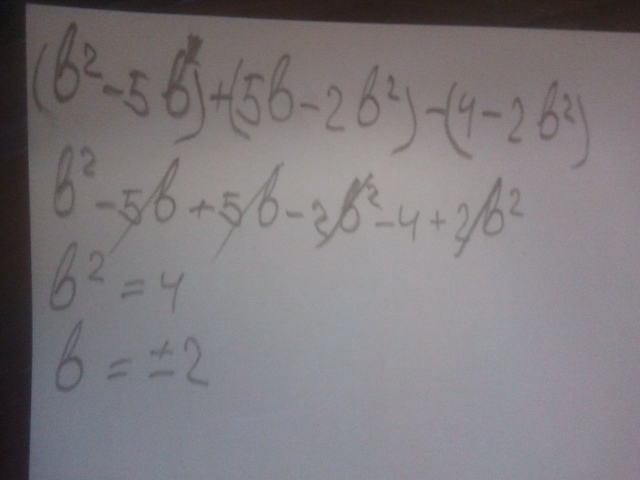 (b² - 5b) + (5b - 2b²) - (4 - 2b²)
b² - 5b + 5b - 2b² - 4 + 2b²
b² = 4
b = ±2